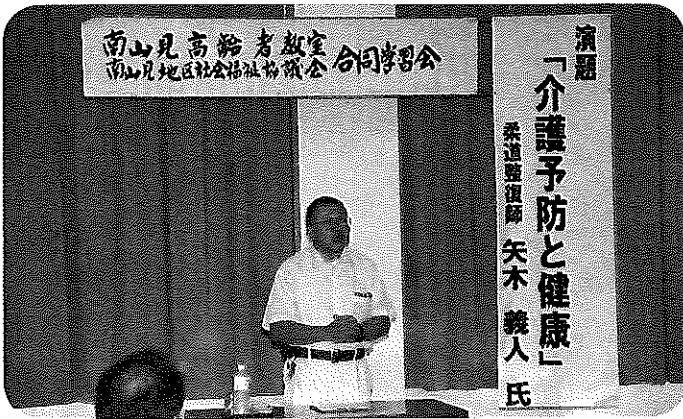 南山見高齢者教室
南山見地区社会福祉協議会
合同学習会
演題
「介護予防と健康」
柔道整復師 矢木 義人 氏